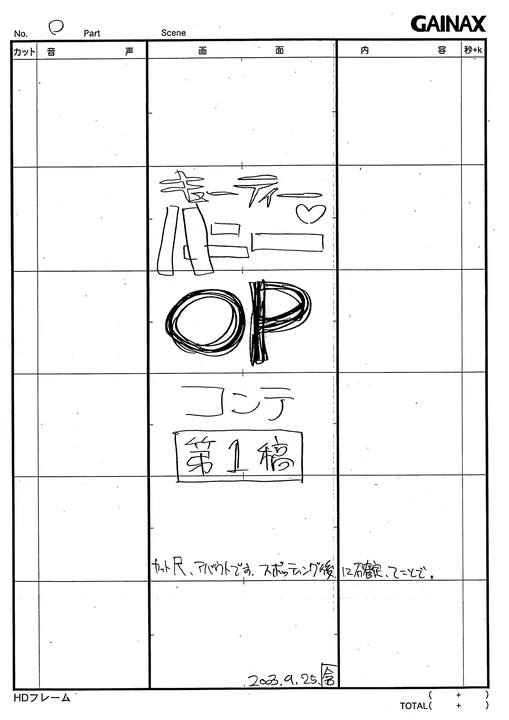 GAINAX
No. 0 Part Scene
カット 音 声 画 面 内 容 秒+k
キューティー♡
ハニー
OP
コンテ
第1稿
カット尺、アバウトです。スポッティング後に確定、てことで。
2003.9.25.
HDフレーム
( + )
TOTAL( + )